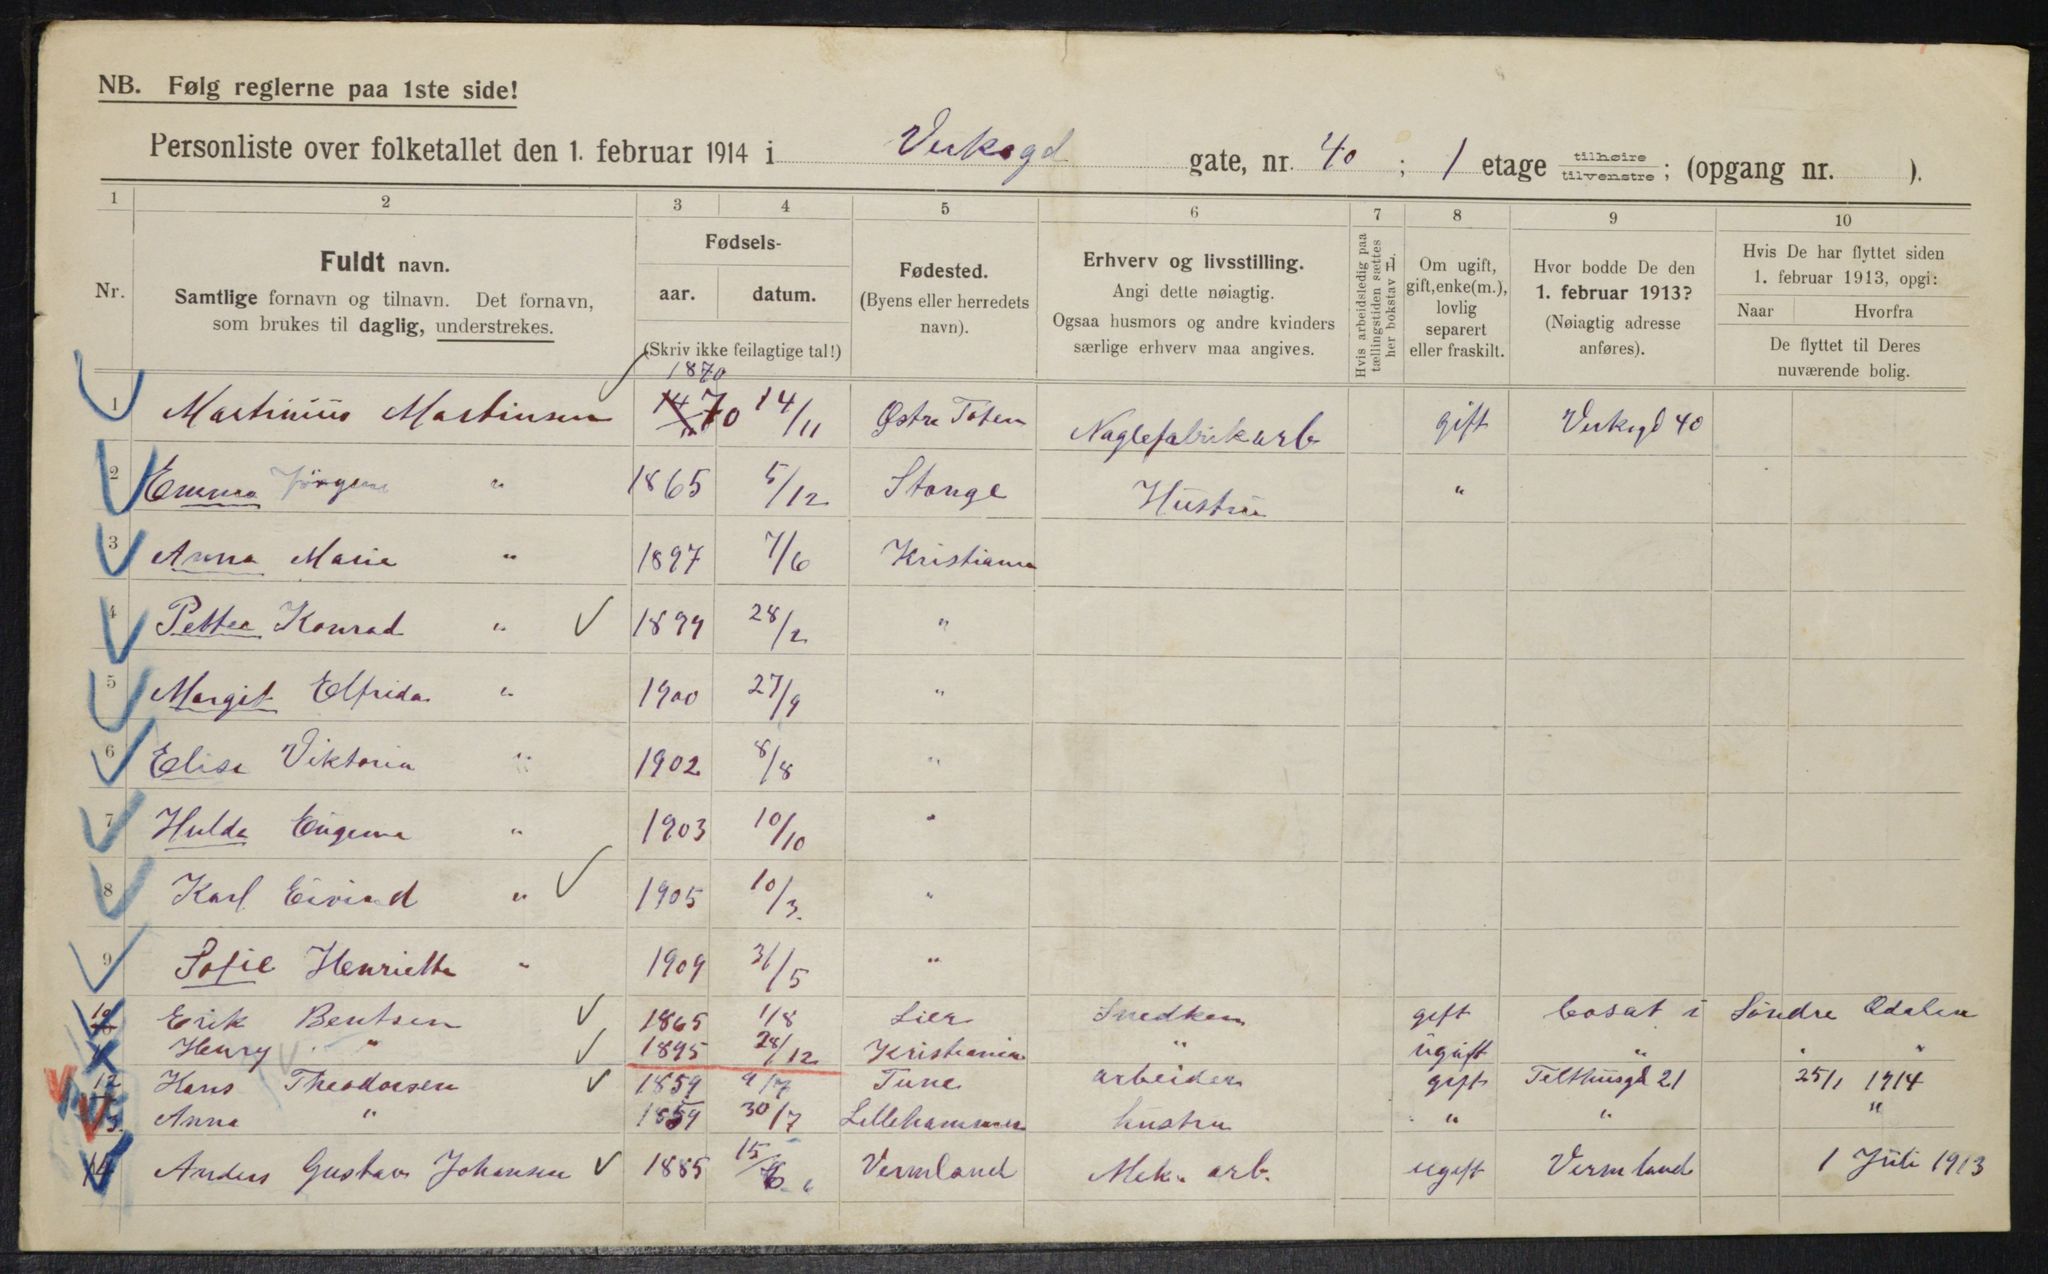 NB. Følg reglerne paa 1ste side!
Personliste over folketallet den 1. februar 1914 i Verksgd gate, nr. 40 ; 1 etage tilhøire tilvenstre ; (opgang nr. ).
1 2 3 4 5 6 7 8 9 10
Nr.
Fuldt navn.
Samtlige fornavn og tilnavn. Det fornavn,
som brukes til daglig, understrekes.
Fødsels-
aar. datum.
(Skriv ikke feilagtige tal!)
Fødested.
(Byens eller herredets
navn).
Erhverv og livsstilling.
Angi dette nøiagtig.
Ogsaa husmors og andre kvinders
særlige erhverv maa angives.
Hvis arbeidsledig paa
tællingstiden sættes
her bokstav L:
Om ugift,
gift, enke(m.),
lovlig
separert
eller fraskilt.
Hvor bodde De den
1. februar 1913?
(Nøiagtig adresse
anføres).
Hvis De har flyttet siden
1. februar 1913, opgi:
Naar Hvorfra
De flyttet til Deres
nuværende bolig.
1870
1 Martinius Martinsen 70 14/11 Østre Toten Naglefabrikarb gift Verksgd 40
2 Emma Jörgine " 1865 5/12 Stange Hustru "
3 Anna Marie " 1897 7/6 Kristiania
4 Petter Konrad " 1899 28/2 "
5 Margit Elfrida " 1900 27/9 "
6 Elise Viktoria " 1902 8/8 "
7 Hulda Eugenie " 1903 10/10 "
8 Karl Eivind " 1905 10/3. "
9 Sofie Henriette " 1909 31/5 "
10 Erik Bentsen 1865 1/8 Lier Snedker gift bosat i Söndre Odalen
Henry " 1895 28/12 Kristiania " ugift " " "
12 Hans Theodorsen 1859 9/7 Tune arbeider gift Telthusgd 21 25/1 1914
13. Anna " 1859 30/7 Lillehammer hustru " " "
14 Anders Gustav Johansen 1885 15/6. Vermland Mek. arb. ugift Vermland 1 Juli 1913